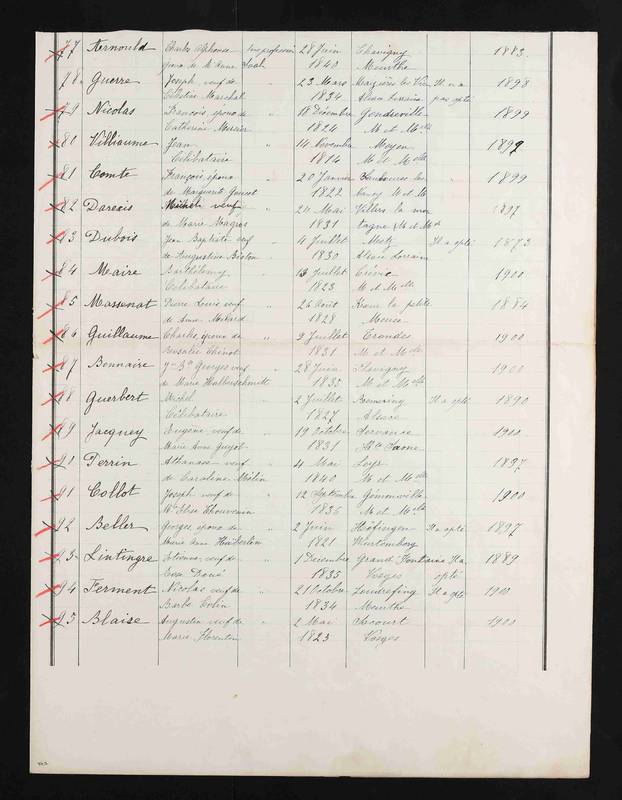 77 Arnould Charles Alphonse Sans profession 28 Juin Chavigny 1883
époux de M Anne 1840 Meurthe
78 Guerre Joseph, veuf de " 23 Mars Maizière les Vic Il n a 1898
Célestine Marchal 1834 Alsace Lorraine pas opté
79 Nicolas François, époux de " 18 Décembre Gondreville 1899
Catherine Mercier 1824 M et Mlle
80 Villiaume Jean " 14 Novembre Moyen 1899
Célibataire 1814 M et Mlle
81 Comte François, époux " 20 Janvier les " 1899
de Marguerite 1822 Nancy M et M
82 Michel veuf " 24 Mai Villers la mon 1897
de Marie Magros 1831 tagne M et M
83 Dubois Jean Baptiste veuf " 4 Juillet Metz Il a opté 1873
de Augustine 1830 Alsace Lorraine
84 Maire Barthélemy " Juillet Crévic 1900
Célibataire 1823 M et Mlle
85 Massenat Pierre Louis veuf " 26 Août la petite 1884
de Anne 1828 Meuse
86 Guillaume Charles, époux de " 9 Juillet Trondes 1900
Rosalie Thinot 1831 M et Mlle
87 Bonnaire Georges veuf " 28 Juin Flavigny 1900
de Marie Halberschmitt 1835 M et Mlle
88 Guerbert Michel " 2 Juillet Il a opté 1890
Célibataire 1827 Alsace
89 Jacquey Eugène veuf de " 19 Octobre Servance 1900
Marie Anne Guyot 1831 Hte Saone
91 Perrin Athanase veuf " 4 Mai Leyr 1897
de Caroline 1840 M et Mlle
91 Collot Joseph veuf de " 12 Septembre Gémonville 1900
Élise Thouvenin 1836 M et Mlle
92 Beller Georges, époux de " 2 Juin Höfingen Il a opté 1897
Marie Anne 1821 Wurtemberg
93 Lintingre Etienne, veuf de " 1 Décembre Grand Fontaine Il a 1889
Eve 1835 Vosges opté
94 Ferment Nicolas veuf de " 21 Octobre Loudrefing Il a opté 1900
Barbe Colin 1834 Meurthe
95 Blaise Augustin veuf de " 2 Mai 1900
Marie Florentin 1823 Vosges